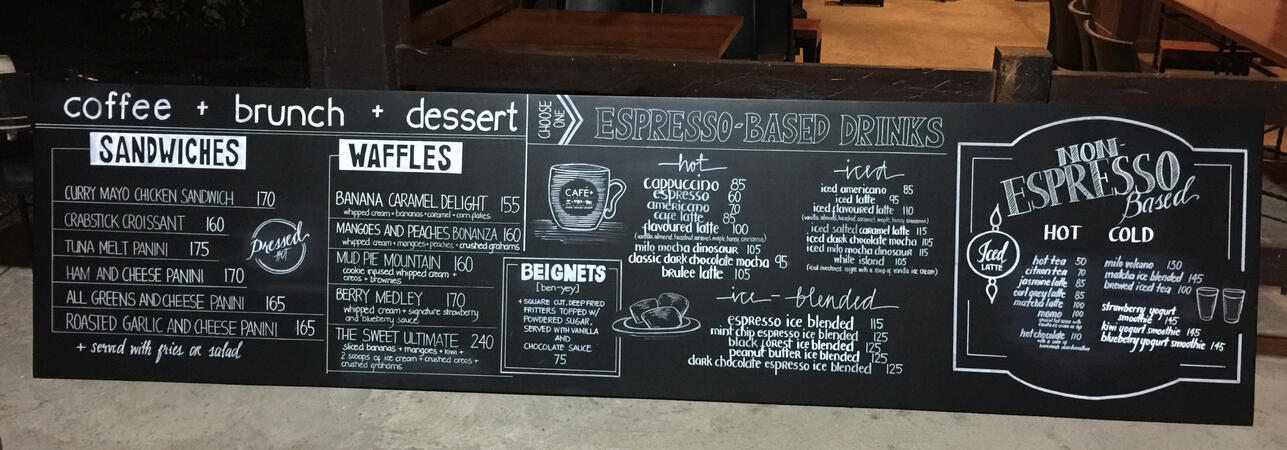 coffee + brunch + dessert
SANDWICHES
CURRY MAYO CHICKEN SANDWICH 170
CRABSTICK CROISSANT 160
TUNA MELT PANINI 175
HAM AND CHEESE PANINI 170
ALL GREENS AND CHEESE PANINI 165
ROASTED GARLIC AND CHEESE PANINI 165
+ served with fries or salad
pressed
HOT
WAFFLES
BANANA CARAMEL DELIGHT 155
whipped cream + bananas + caramel + corn flakes
MANGOES AND PEACHES BONANZA 160
whipped cream + mangoes + peaches + crushed grahams
MUD PIE MOUNTAIN 160
cookie infused whipped cream +
oreos + brownies
BERRY MEDLEY 170
whipped cream + signature strawberry
and blueberry sauce
THE SWEET ULTIMATE 240
sliced bananas + mangoes + kiwi +
2 scoops of ice cream + crushed oreos +
crushed grahams
CHOOSE
ONE
ESPRESSO-BASED DRINKS
CAFÉ+
hot
cappuccino 85
espresso 60
americano 70
cafe latte 85
flavoured latte 100
(vanilla, almond, hazelnut, caramel, maple, honey, cinnamon)
milo mocha dinosaur 105
classic dark chocolate mocha 95
brulee latte 105
iced
iced americano 85
iced latte 95
iced flavoured latte 110
(vanilla, almond, hazelnut, caramel, maple, honey, cinnamon)
iced salted caramel latte 115
iced dark chocolate mocha 105
iced milo mocha dinosaur 115
white island 105
(iced sweetened coffee with a scoop of vanilla ice cream)
BEIGNETS
[ben-yey]
+ SQUARE CUT, DEEP FRIED
FRITTERS TOPPED W/
POWDERED SUGAR,
SERVED WITH VANILLA
AND
CHOCOLATE SAUCE
75
ice-blended
espresso ice blended 115
mint chip espresso ice blended 125
black forest ice blended 125
peanut butter ice blended 125
dark chocolate espresso ice blended 125
NON-
ESPRESSO
Based
Iced
LATTE
HOT
hot tea 50
citron tea 70
jasmine latte 85
earl grey latte 85
matcha latte 100
momo 100
hot chocolate 110
COLD
milo volcano 130
matcha ice blended 145
brewed iced tea 100
strawberry yogurt
smoothie 145
kiwi yogurt smoothie 145
blueberry yogurt smoothie 145